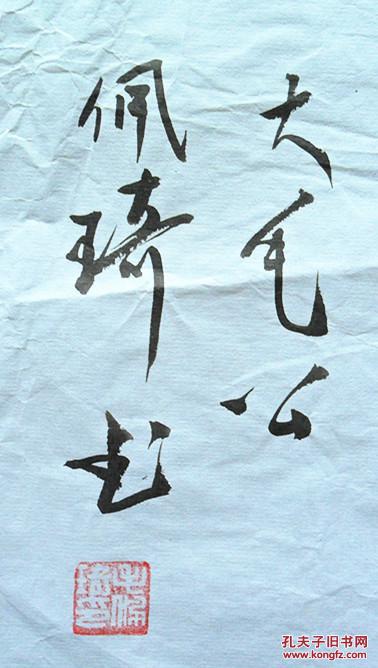 大毛公
佩琦书
孔夫子旧书网
www.kongfz.com